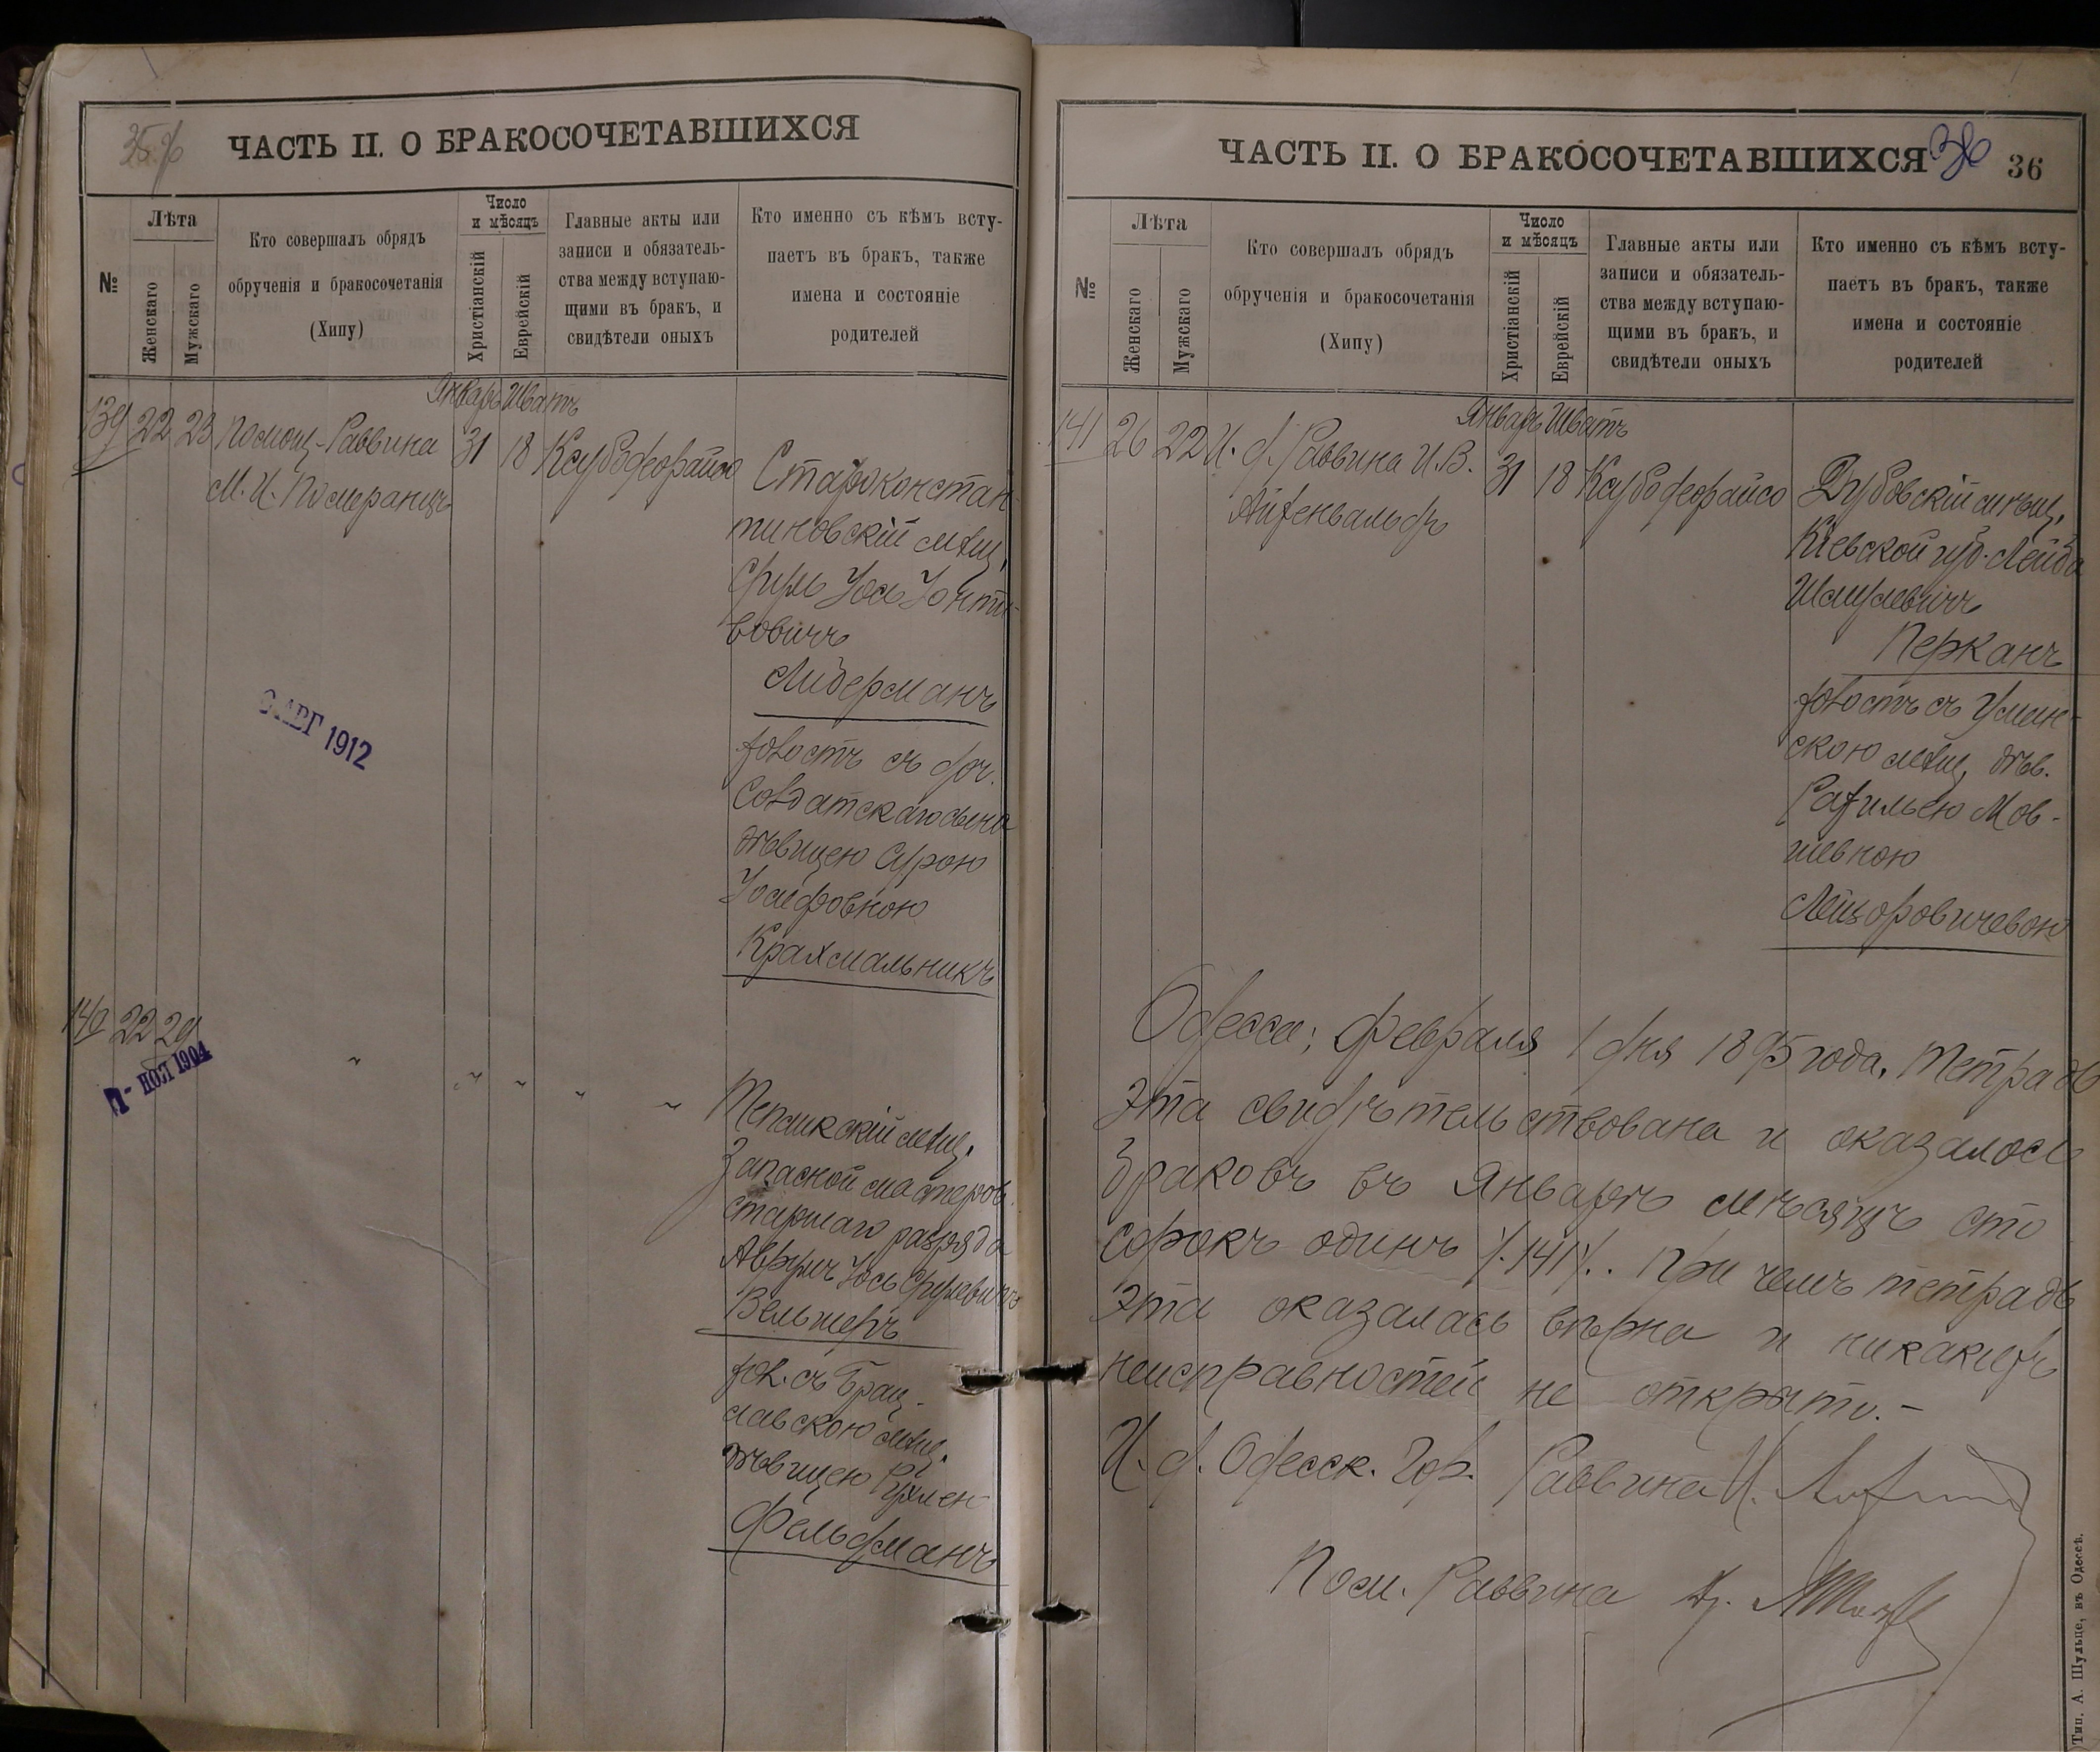 35 об
ЧАСТЬ II. О БРАКОСОЧЕТАВШИХСЯ
№
Лѣта
Женскаго
Мужскаго
Кто совершалъ обрядъ
обрученія и бракосочетанія
(Хипу)
Число
и мѣсяцъ
Христіанскій
Еврейскій
Главные акты или
записи и обязатель-
ства между вступаю-
щими въ бракъ, и
свидѣтели оныхъ
Кто именно съ кѣмъ всту-
паетъ въ бракъ, также
имена и состояніе
родителей
Январь Шватъ
139 22 23 Помощ. Раввина 31 18
М. И. Померанцъ
Староконстан-
тиновскій мѣщ.
Сруль Іось Іонти-
вовичъ
Либерманъ
холостъ съ доч.
Солдатскаго сына
дѣвицею Сурою
Іосифовною
Крахмальникъ
АВГ 1912
140 22
НОЯ 1904
мѣщ.
Запасной мастеров.
старшаго разряда
Аврумъ Іось Срулевичъ
Вельшеръ
хол. съ Брац-
лавскою мѣщ.
дѣвицею Рухлею
Фельдманъ
ЧАСТЬ II. О БРАКОСОЧЕТАВШИХСЯ
36
36
№
Лѣта
Женскаго
Мужскаго
Кто совершалъ обрядъ
обрученія и бракосочетанія
(Хипу)
Число
и мѣсяцъ
Христіанскій
Еврейскій
Главные акты или
записи и обязатель-
ства между вступаю-
щими въ бракъ, и
свидѣтели оныхъ
Кто именно съ кѣмъ всту-
паетъ въ бракъ, также
имена и состояніе
родителей
Январь Шватъ
141 26 22 И. д. Раввина И. В. 31 18
Айзенвальдъ
Дубовскій мѣщ.
Кіевской губ. Лейба
Шмулевичъ
Перканъ
холостъ съ Уман-
скою мѣщ. дѣв.
Рахилью Мов-
шевною
Лейзоровичевою
Одесса, февраля 1 дня 1895 года. Тетрадь
эта свидѣтельствована и оказалось
браковъ въ Январѣ мѣсяцѣ сто
сорокъ одинъ /.141/. При чемъ тетрадь
эта оказалась вѣрна и никакихъ
неисправностей не открыто.-
И. д. Одесск. Гор. Раввина И.
Пом. Раввина Др.
Тип. А. Шульце, въ Одессѣ.